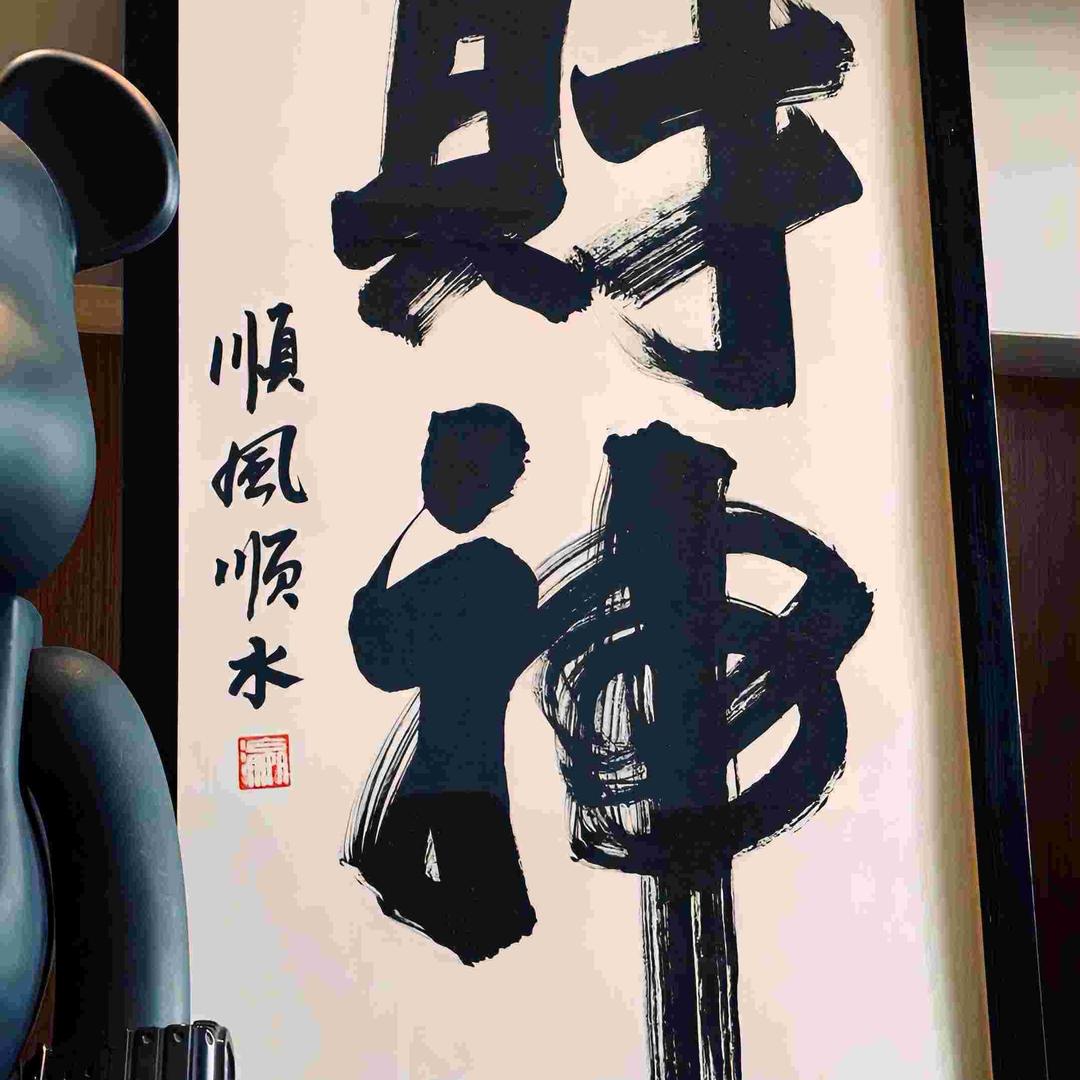 財神
順風順水